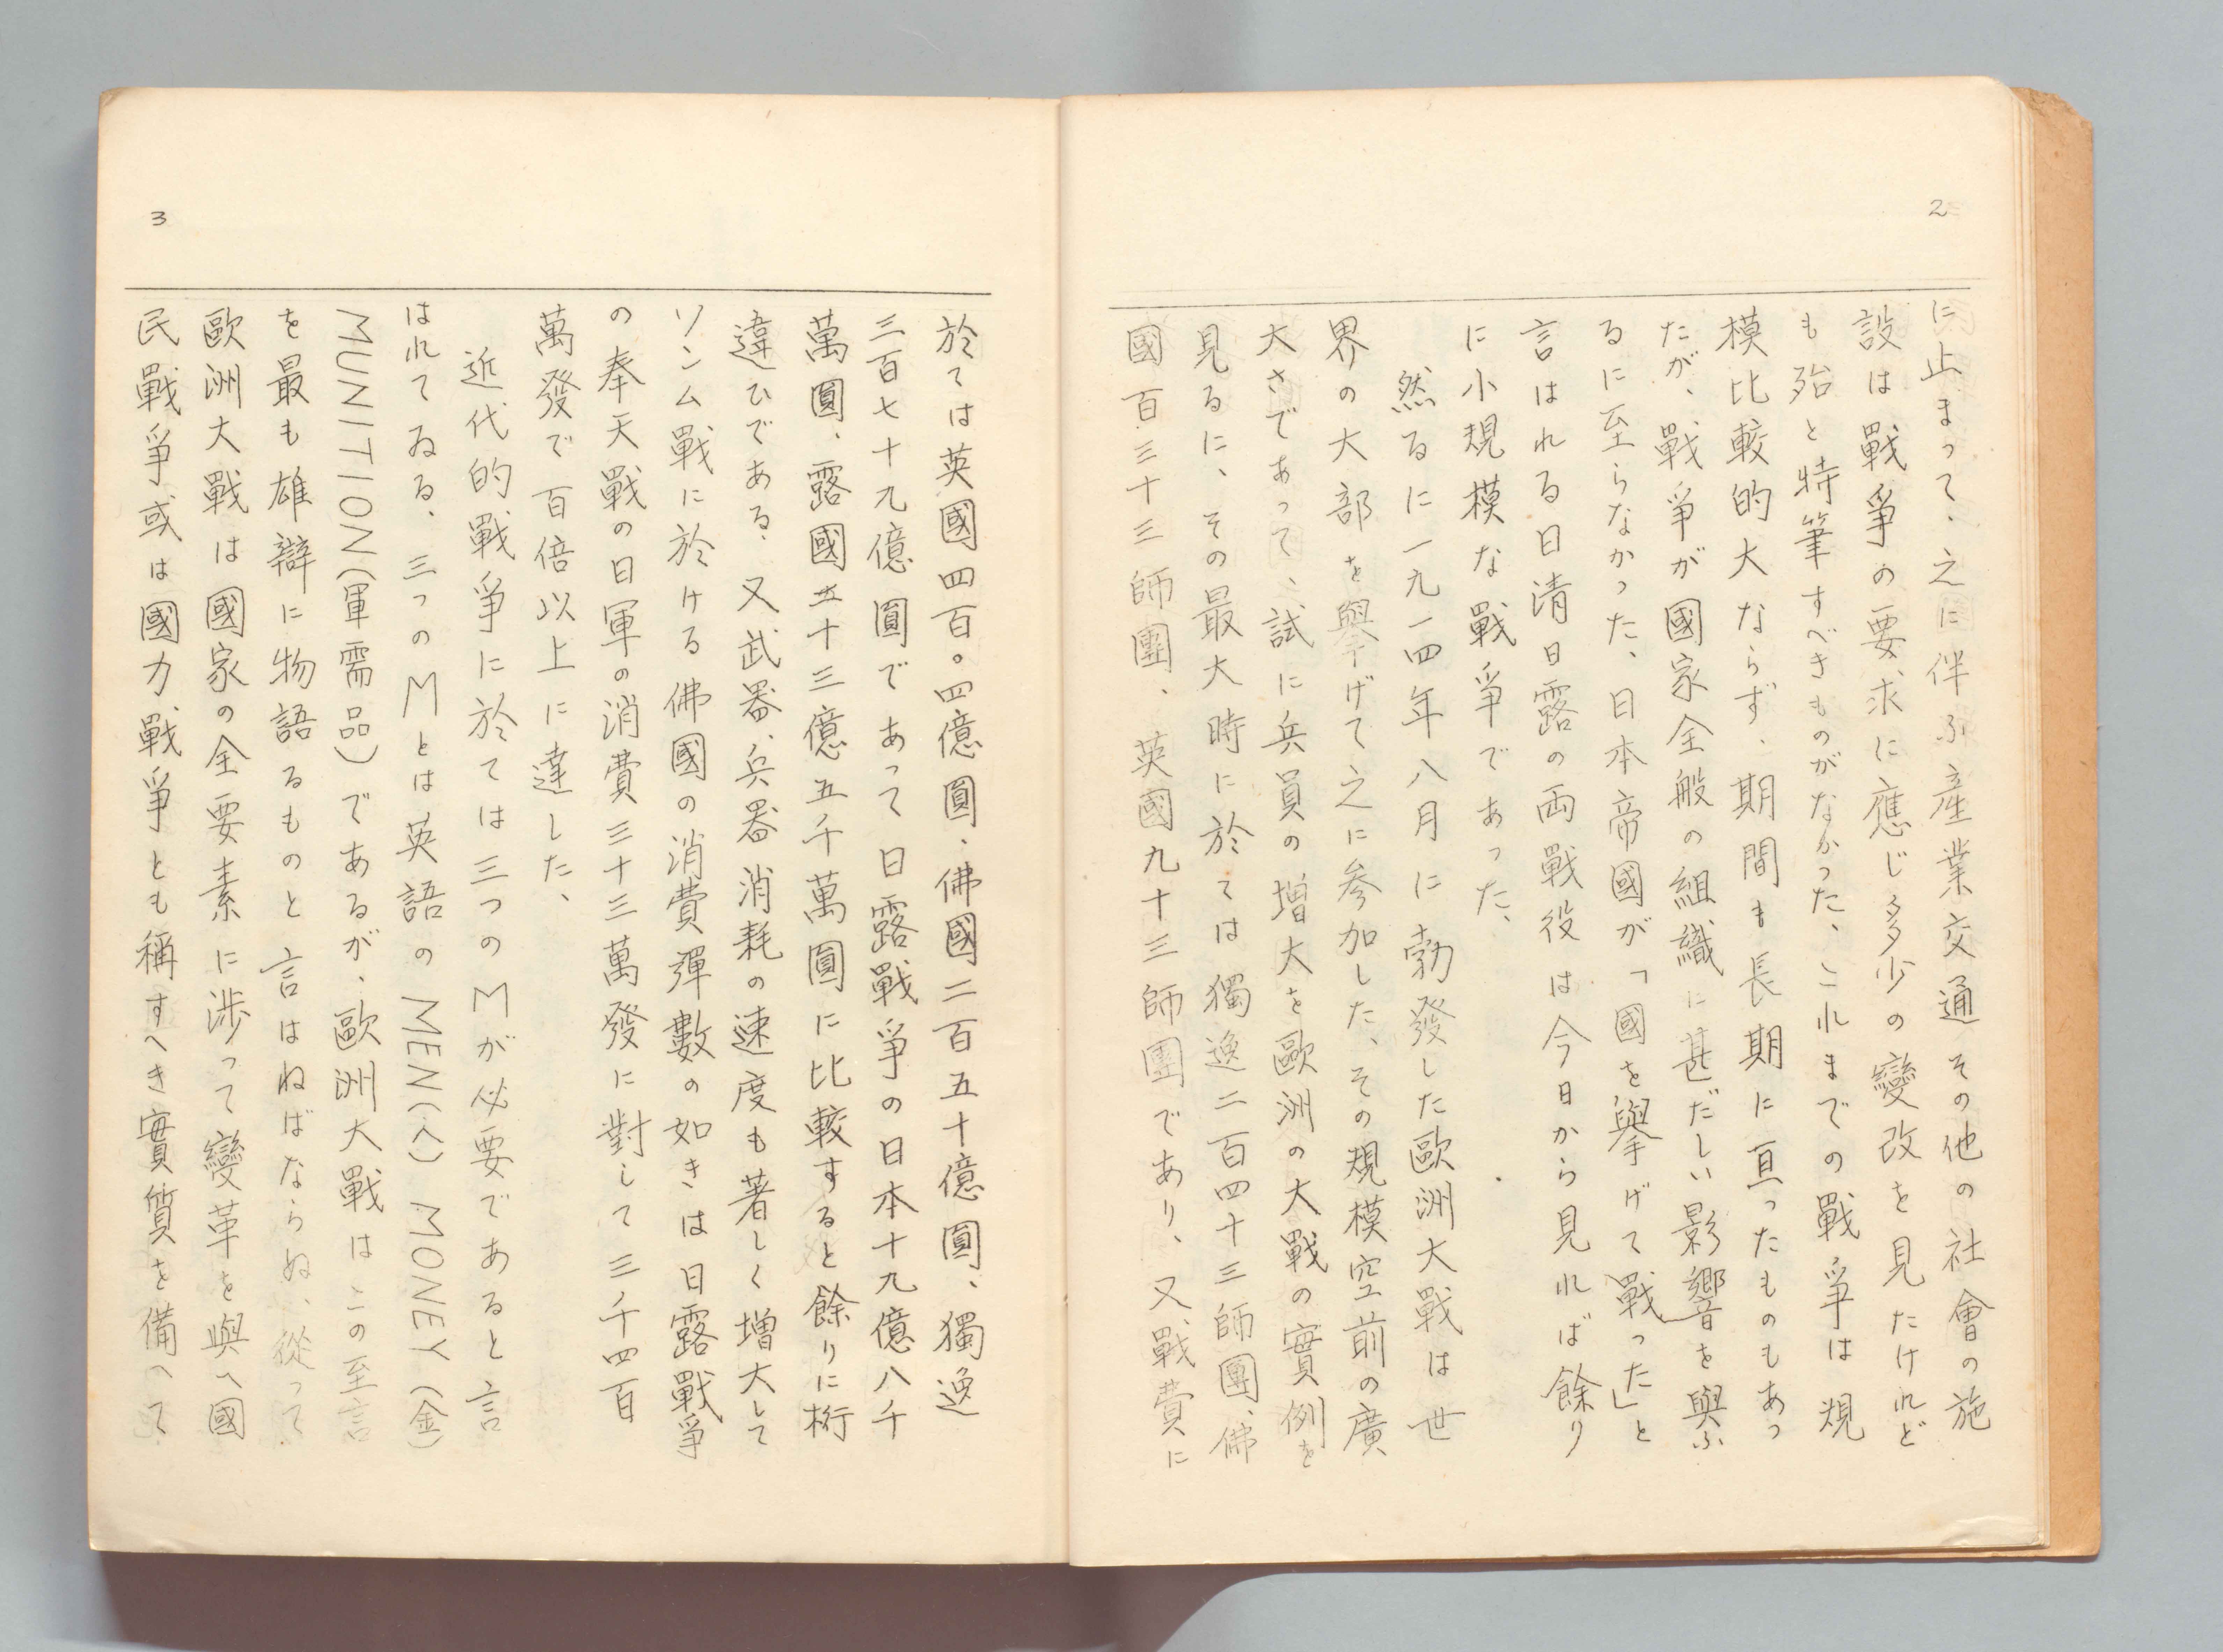 2
に止まって、之に伴ふ産業交通その他の社會の施
設は戰爭の要求に應じ多少の變改を見たけれど
も殆と特筆すべきものがなかった、これまでの戰爭は規
模比較的大ならず、期間も長期に亘ったものもあっ
たが、戰爭が國家全般の組織に甚だしい影響を與ふ
るに至らなかった、日本帝國が「國を擧げて戰った」と
言はれる日清日露の両戰役は今日から見れば餘り
に小規模な戰爭であった、
然るに一九一四年八月に勃發した歐洲大戰は世
界の大部を擧げて之に参加した、その規模空前の廣
大さであって、試に兵員の増大を歐洲の大戰の實例を
見るに、その最大時に於ては獨逸二百四十三師團、佛
國百三十三師團、英國九十三師團であり、又戰費に
3
於ては英國四百〇四億圓、佛國二百五十億圓、獨逸
三百七十九億圓であって日露戰爭の日本十九億八千
萬圓、露國五十三億五千萬圓に比較すると餘りに桁
違ひである、又武器、兵器消耗の速度も著しく増大して
ソンム戰に於ける佛國の消費彈數の如きは日露戰爭
の奉天戰の日軍の消費三十三萬發に對して三千四百
萬發で百倍以上に達した、
近代的戰爭に於ては三つのMが必要であると言
はれてゐる、三つのMとは英語のMEN(人)MONEY(金)
MUNITION(軍需品)であるが、歐洲大戰はこの至言
を最も雄辯に物語るものと言はねばならぬ、從って
歐洲大戰は國家の全要素に渉って變革を與へ國
民戰爭或は國力戰爭とも稱すへき實質を備へて